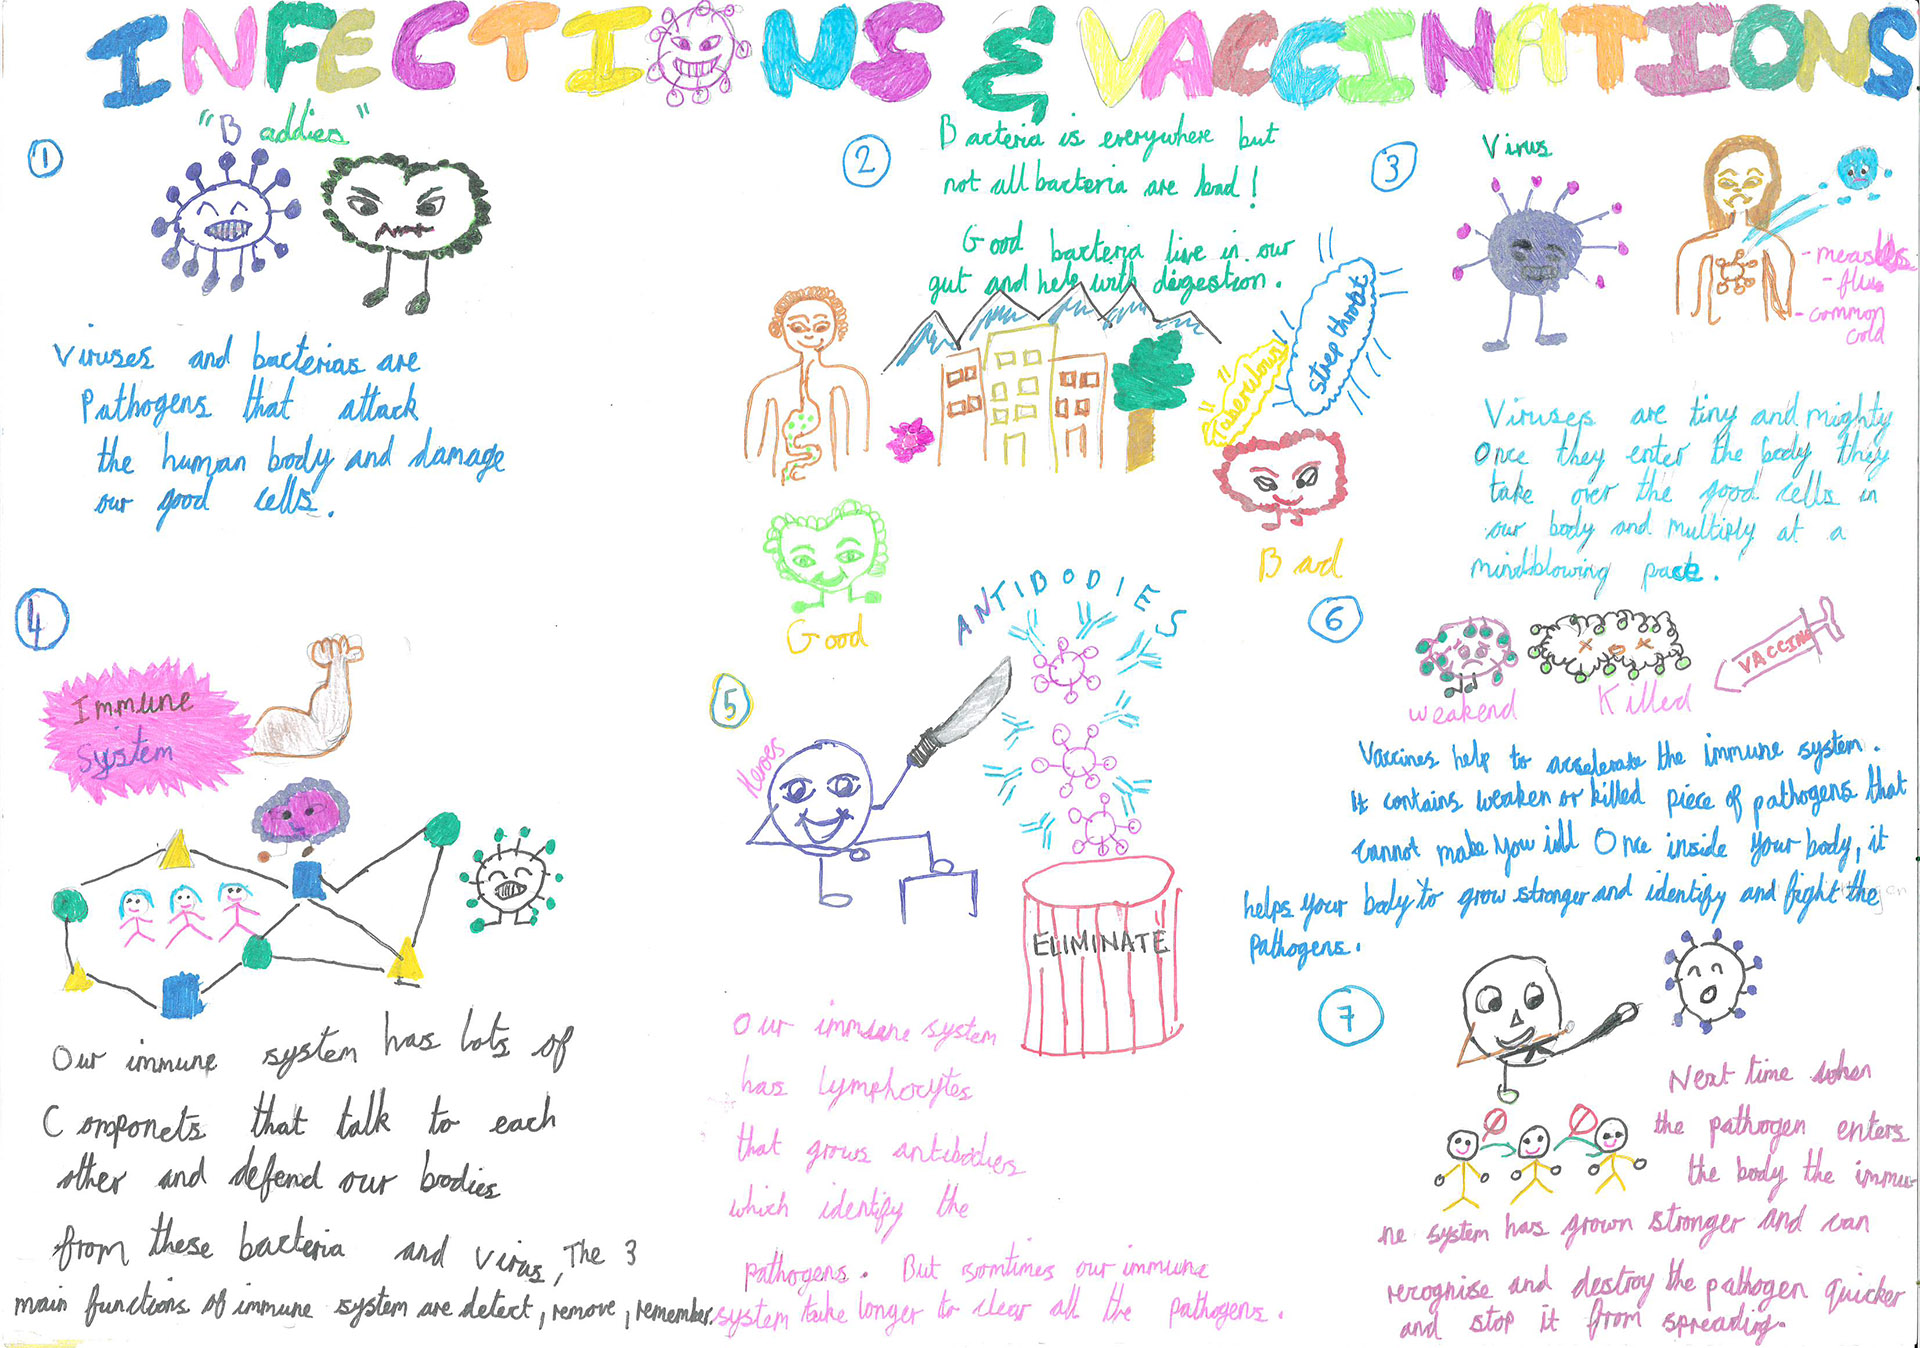 INFECTIONS & VACCINATIONS
1
"Baddies"
Viruses and bacterias are
Pathogens that attack
the human body and damage
our good cells.
2
Bacteria is everywhere but
not all bacteria are bad!
Good bacteria live in our
gut and help with digestion.
Tuberculous
Strep throat
Good
Bad
3
Virus
- measles
- flu
- common
cold
Viruses are tiny and mighty
Once they enter the body they
take over the good cells in
our body and multiply at a
mindblowing pace.
4
Immune
System
Our immune system has lots of
Componets that talk to each
other and defend our bodies
from these bacteria and virus, The 3
main functions of immune system are detect, remove, remember.
5
Heroes
ANTIBODIES
ELIMINATE
Our immune system
has lymphocytes
that grows antibodies
which identify the
pathogens. But somtimes our immune
system take longer to clear all the pathogens.
6
weakend
Killed
VACCINE
Vaccines help to accelerate the immune system.
It contains weaken or killed piece of pathogens that
cannot make you ill Once inside your body, it
helps your body to grow stronger and identify and fight the
pathogens.
7
Next time when
the pathogen enters
the body the immu-
ne system has grown stronger and can
recognise and destroy the pathogen quicker
and stop it from spreading.